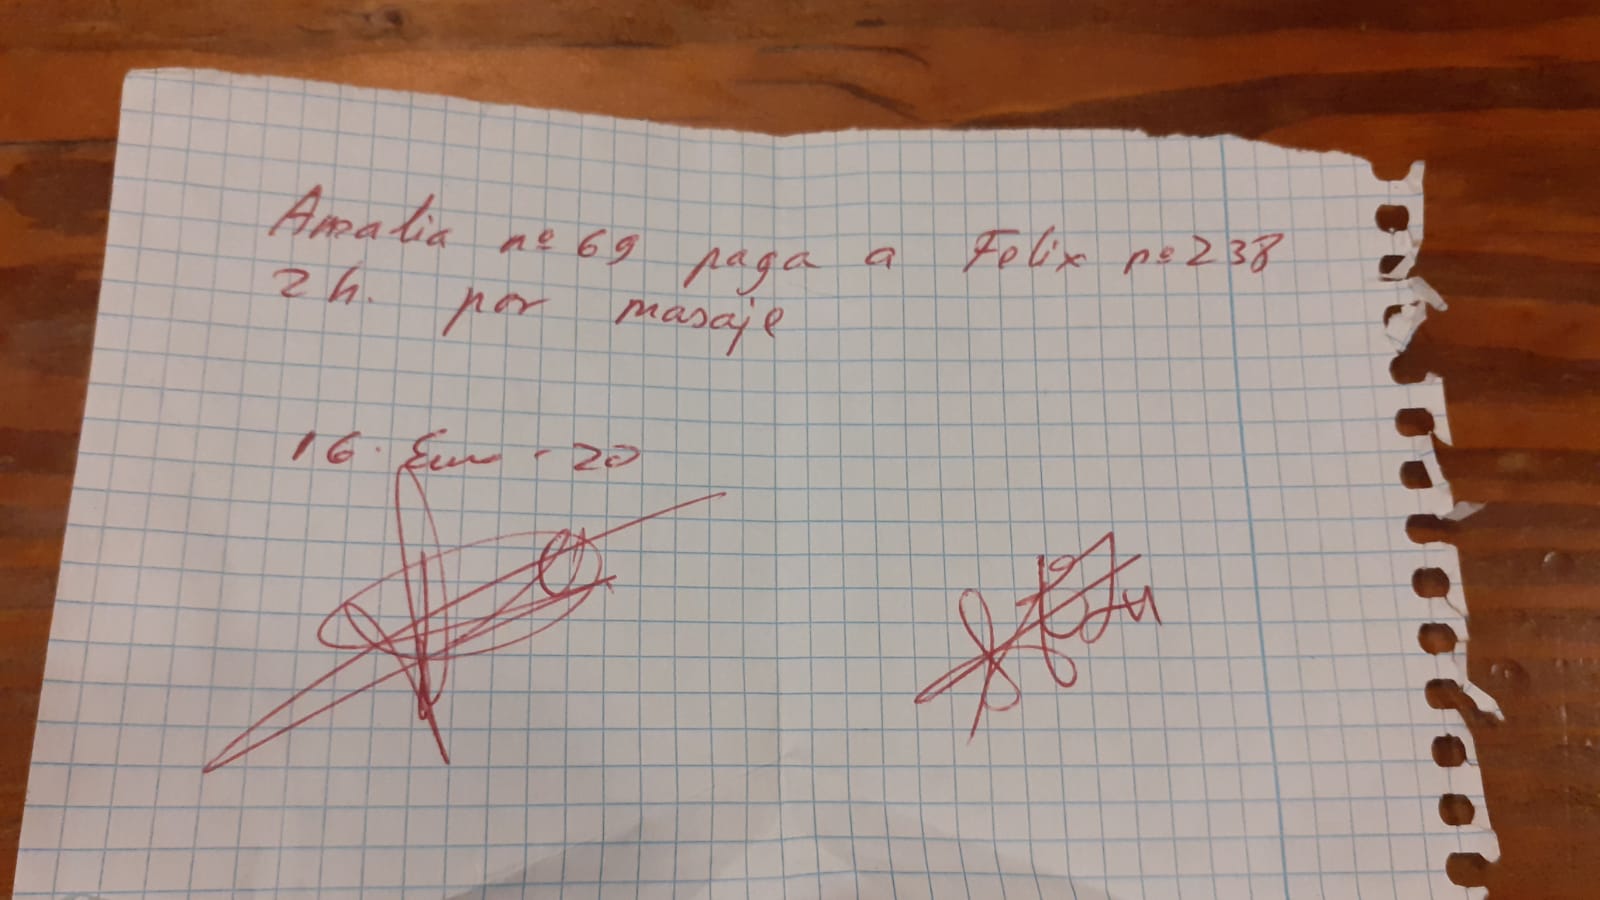 Amalia nº 69 paga a Felix nº 238
2 h. por masaje
16 · Ene · 20